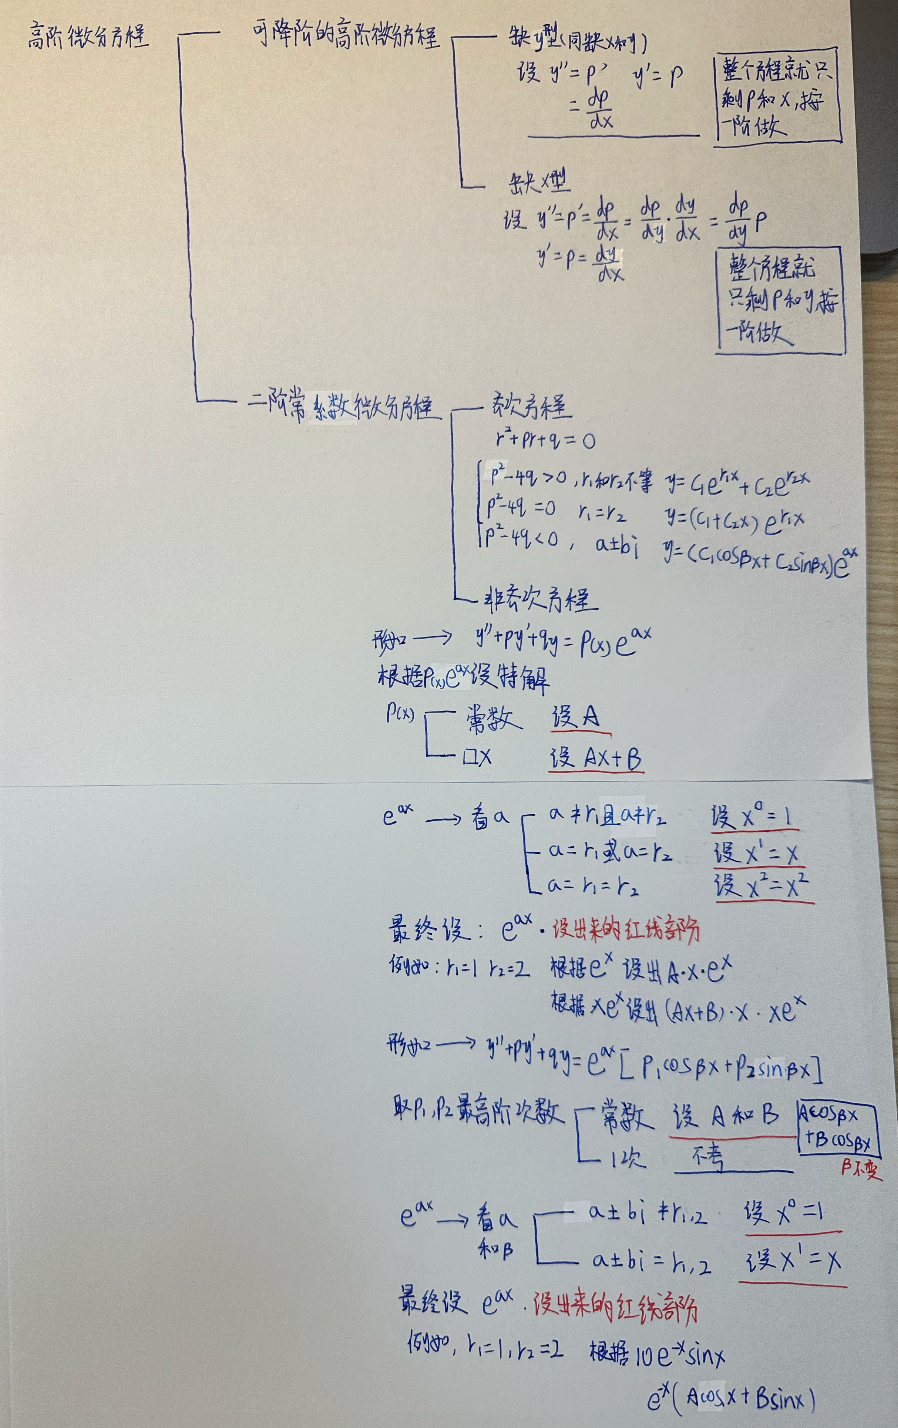 高阶微分方程
可降阶的高阶微分方程
缺y型(同缺x和y)
设 y''=p' y'=p
=dp/dx
整个方程就只
剩p和x,按
一阶做
缺x型
设 y''=p'=dp/dx=dp/dy·dy/dx=dp/dy p
y'=p=dy/dx
整个方程就
只剩p和y,按
一阶做
二阶常系数微分方程
齐次方程
r²+pr+q=0
p²-4q>0,r₁和r₂不等 y=C₁e^{r₁x}+C₂e^{r₂x}
p²-4q=0 r₁=r₂ y=(C₁+C₂x)e^{r₁x}
p²-4q<0, a±bi y=(C₁cosβx+C₂sinβx)e^{ax}
非齐次方程
形如→ y''+py'+qy=P(x)e^{ax}
根据P(x)e^{ax}设特解
P(x)
常数 设A
口x 设Ax+B
e^{ax}→看a
a≠r₁且a≠r₂ 设x⁰=1
a=r₁或a=r₂ 设x¹=x
a=r₁=r₂ 设x²=x²
最终设:e^{ax}·设出来的红线部分
例如:r₁=1 r₂=2 根据e^x设出A·x·e^x
根据xe^x设出(Ax+B)·x·xe^x
形如2→y''+py'+qy=e^{ax}[P₁cosβx+P₂sinβx]
取P₁,P₂最高阶次数
常数 设A和B
Acosβx
+Bcosβx
β不变
1次 不考
e^{ax}→看a
和β
a±bi≠r₁,₂ 设x⁰=1
a±bi=r₁,₂ 设x¹=x
最终设 e^{ax}·设出来的红线部分
例如,r₁=1,r₂=2 根据10e^{-x}sinx
e^{-x}(Acosx+Bsinx)